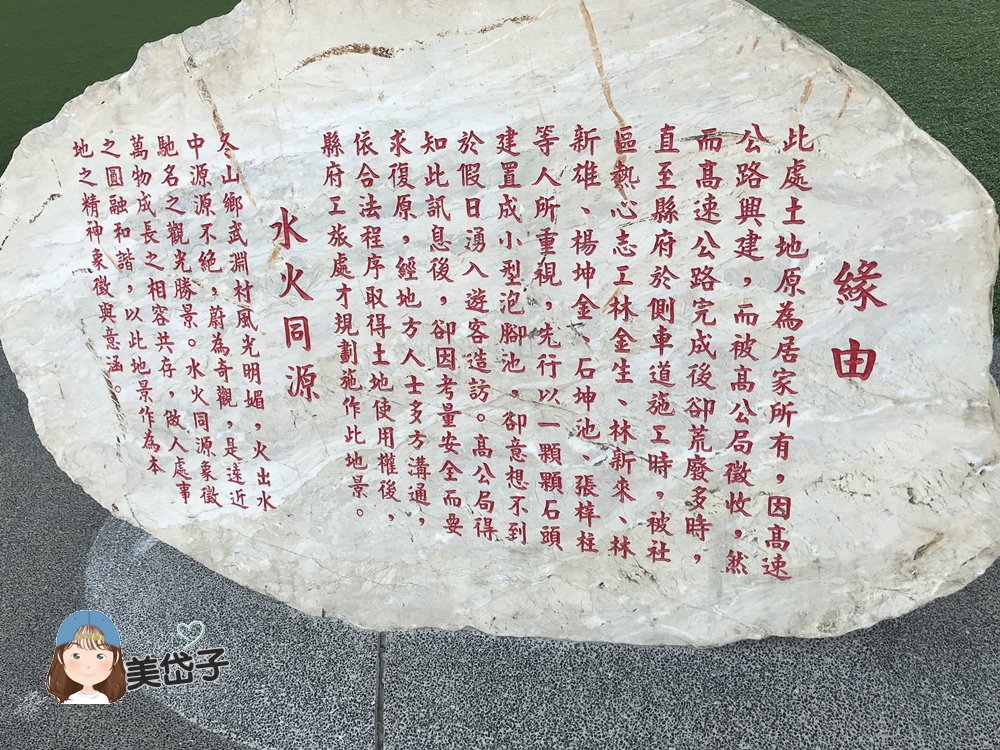 緣由
此處土地原為居家所有，因高速
公路興建，而被高公局徵收，然
而高速公路完成後卻荒廢多時，
直至縣府於側車道施工時，被社
區熱心志工林金生、林新來、林
新雄、楊坤金、石坤池、張梓柱
等人所重視，先行以一顆顆石頭
建置成小型泡腳池，卻意想不到
於假日湧入遊客造訪。高公局得
知此訊息後，卻因考量安全而要
求復原，經地方人士多方溝通，
依合法程序取得土地使用權後，
縣府工旅處才規劃施作此地景。
水火同源
冬山鄉武淵村風光明媚，火出水
中源源不絕，蔚為奇觀，是遠近
馳名之觀光勝景。水火同源象徵
萬物成長之相容共存，做人處事
之圓融和諧，以此地景作為本
地之精神象徵與意涵。
美岱子